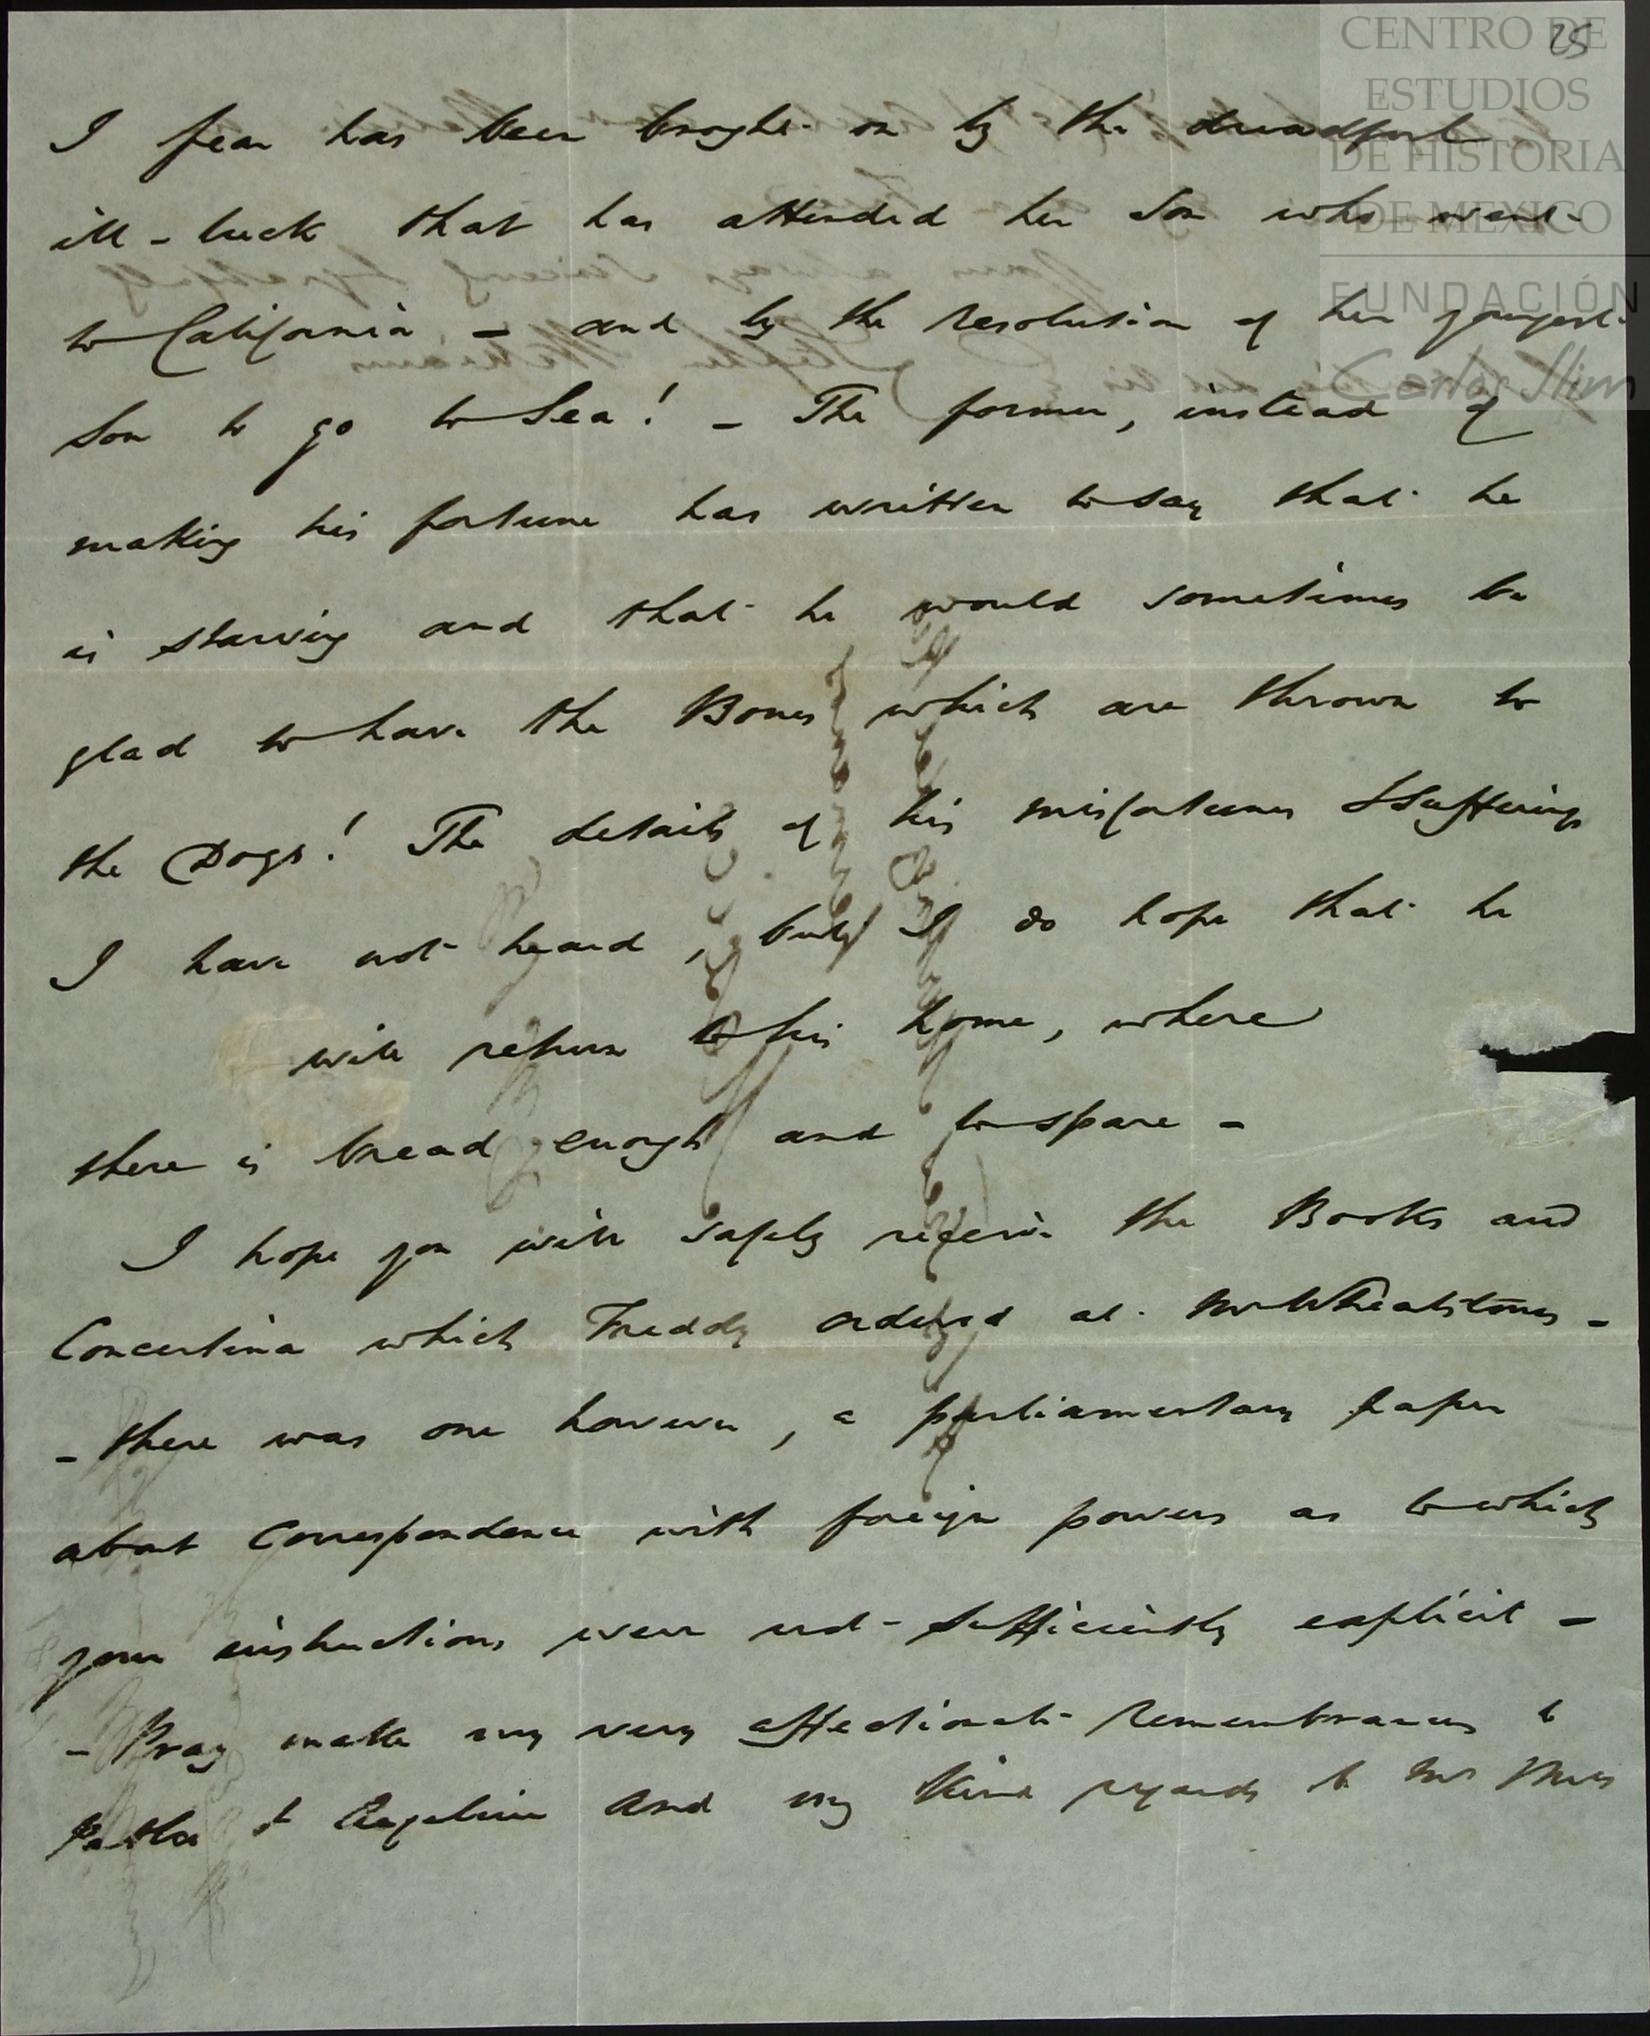 25
CENTRO DE
ESTUDIOS
DE HISTORIA
DE MEXICO
FUNDACIÓN
Carlos Slim
I fear has been brought on by the dreadful
ill-luck that has attended her Son who went
to California - and by the resolution of her youngest
Son to go to Sea! - The former, instead of
making his fortune has written to say that he
is starving and that he would sometimes be
glad to have the Bones which are thrown to
the Dogs! The details of his misfortunes & sufferings
I have not heard, but I do hope that he
will return to his home, where
there is bread enough and to spare -
I hope you will safely receive the Books and
Concertina which Freddy ordered at Mr Wheatstones -
- there was one however, a parliamentary paper
about Correspondence with foreign powers as to which
your instructions were not sufficiently explicit -
- Pray make my very affectionate remembrances to
& Angelina and my kind regards to Mr